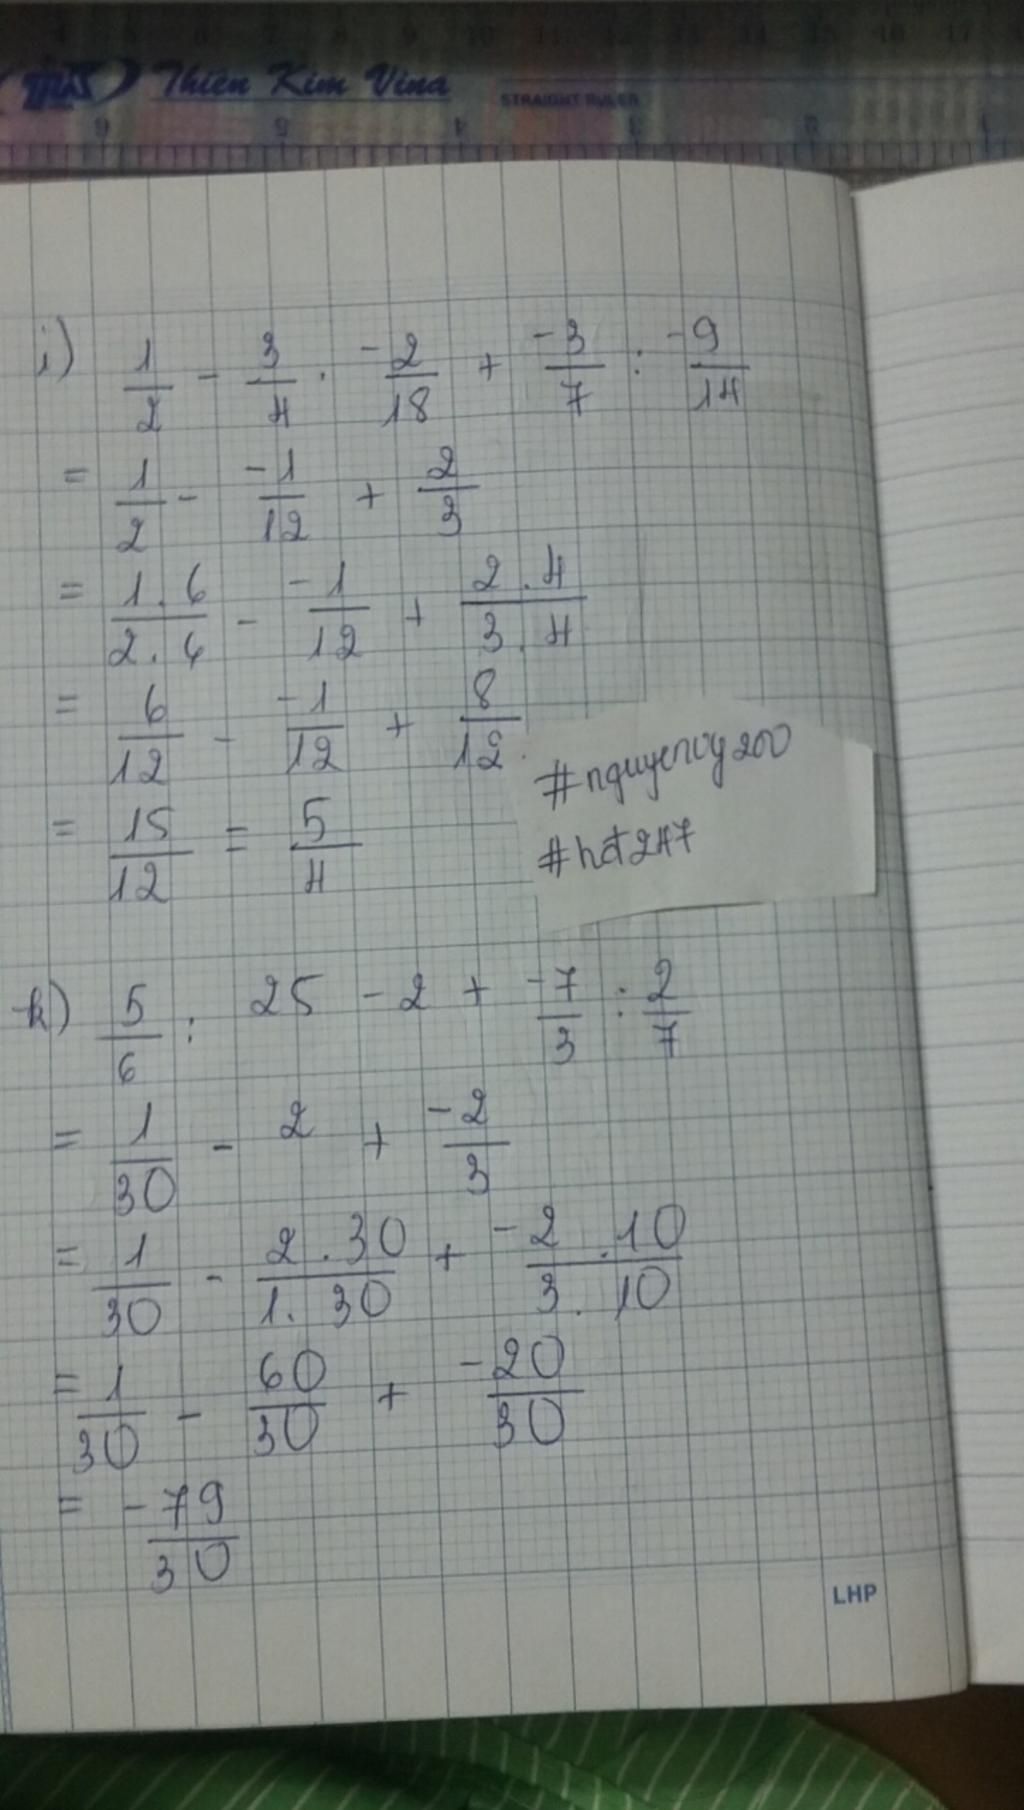 4 5 6 7 8 9 10 11 12 13 14 15 16 17
Thiên Kim Vina
STRAIGHT RULER
6 5 4 3 2 1
i) 1/2 - 3/4 . -2/18 + -3/7 : -9/14
= 1/2 - -1/12 + 2/3
= 1.6/2.6 - -1/12 + 2.4/3.4
= 6/12 - -1/12 + 8/12
= 15/12 = 5/4
#nguyenvy200
#hđ247
k) 5/6 : 25 - 2 + -7/3 . 2/7
= 1/30 - 2 + -2/3
= 1/30 - 2.30/1.30 + -2.10/3.10
= 1/30 - 60/30 + -20/30
= -79/30
LHP